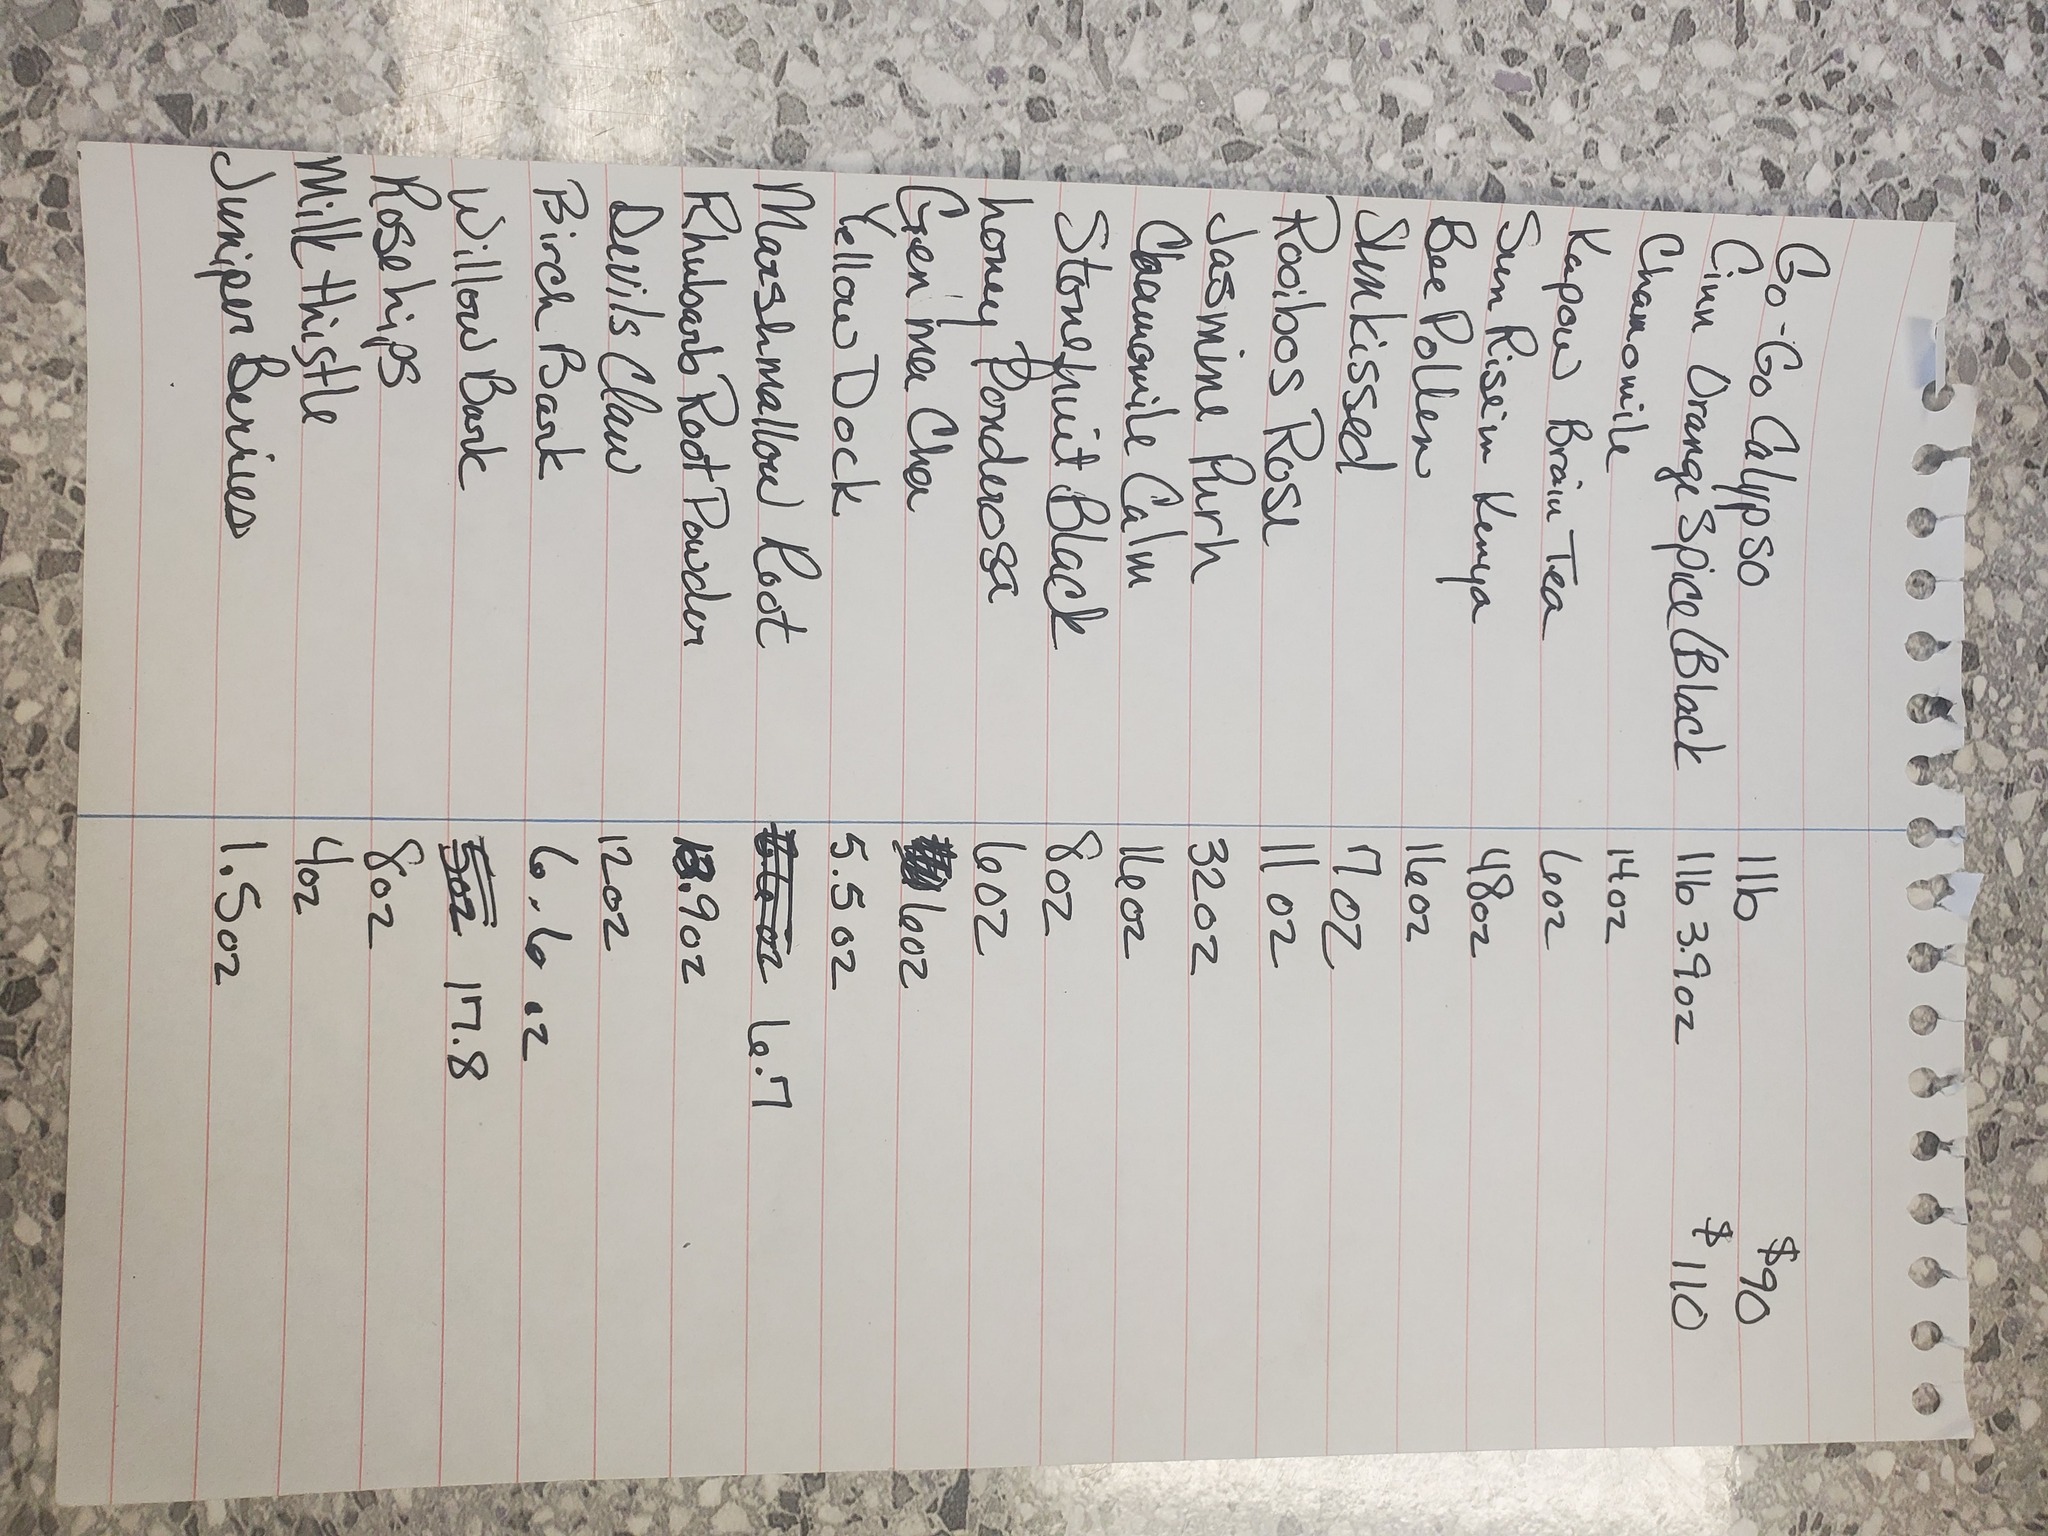 Go-Go Calypso 1lb $90
Cinn Orange Spice/Black 1lb 3.9oz $110
Chamomile 14oz
Kapow Brain Tea 6oz
Sun Rise in Kenya 48oz
Bee Pollen 16oz
Sunkissed 7oz
Rooibos Rose 11oz
Jasmine Purh 32oz
Chamomile Calm 16oz
Stonefruit Black 8oz
honey Ponderosa 6oz
Gen'ma Cha 6oz
Yellow Dock 5.5oz
Marshmallow Root 6.7
Rhubarb Root Powder .9oz
Devils Claw 12oz
Birch Bark 6.6oz
Willow Bark 5oz 17.8
Rosehips 8oz
Milk thistle 4oz
Juniper Berries 1.5oz